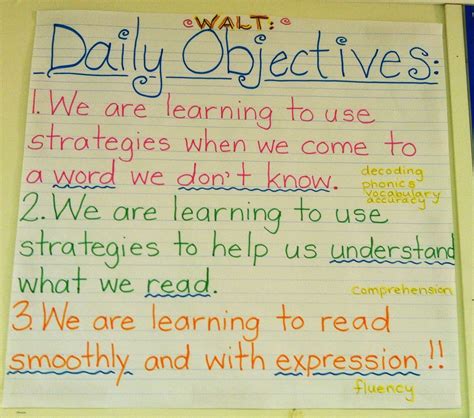 WALT:
Daily Objectives:
1. We are learning to use
strategies when we come to
a word we don't know.
decoding
phonics
vocabulary
accuracy
2. We are learning to use
strategies to help us understand
what we read.
comprehension
3. We are learning to read
smoothly and with expression!!
fluency